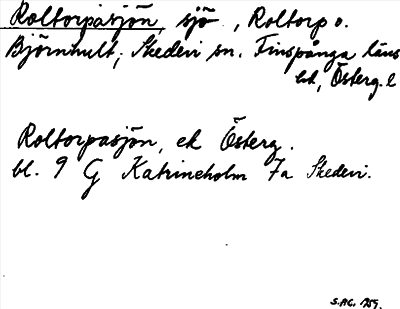 Roltorpasjön, sjö, Roltorp o.
Björnhult, Skedevi sn. Finspånga läns
hd, Österg. l
Roltorpasjön, ek Österg.
bl. 9 G Katrineholm 7a Skedevi.
S.AG. 1959.